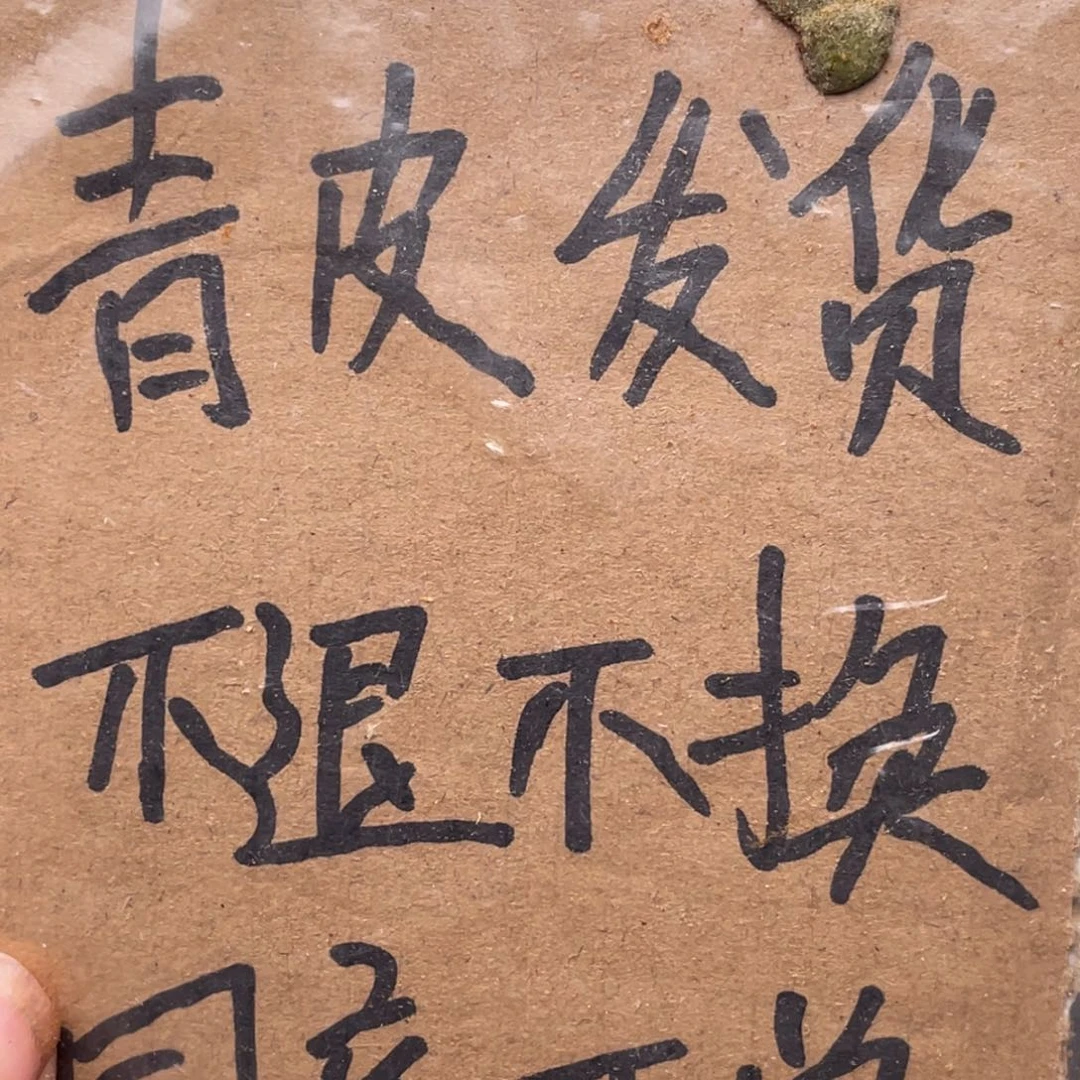 青皮发货
不退不换